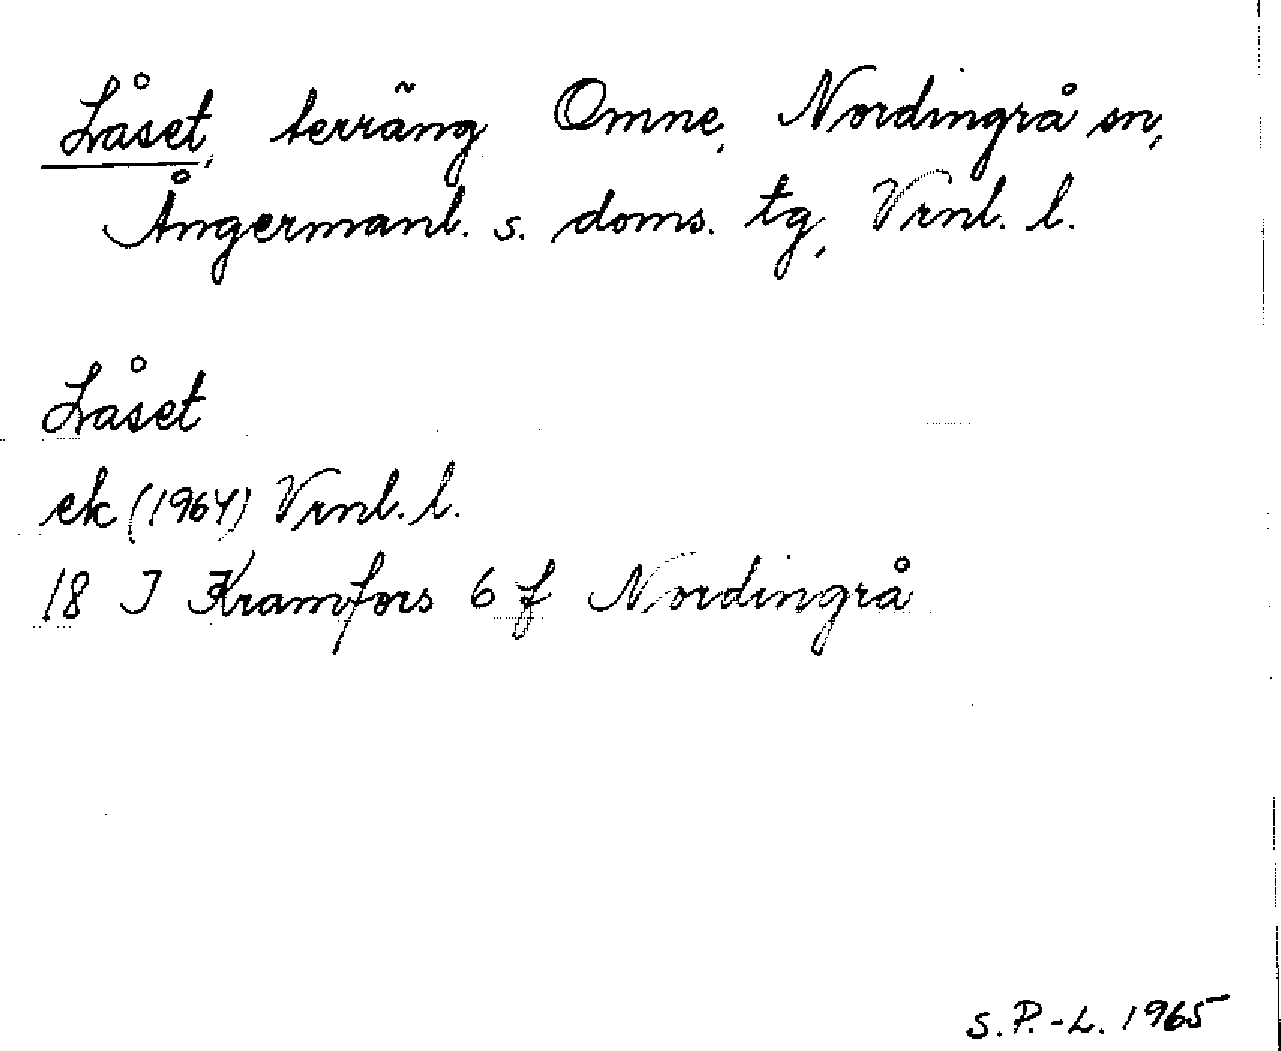 Låset, terräng Omne, Nordingrå sn,
Ångermanl. s. doms. tg, Vrnl. l.
Låset
ek (1964) Vrnl. l.
18 J Kramfors 6 f Nordingrå
S.P.-L. 1965